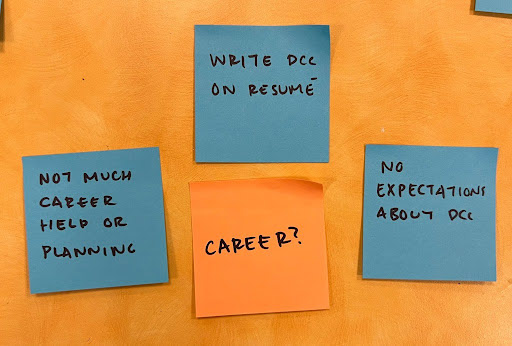 WRITE DCC
ON RESUMÉ
NOT MUCH
CAREER
HELP OR
PLANNING
CAREER?
NO
EXPECTATIONS
ABOUT DCC